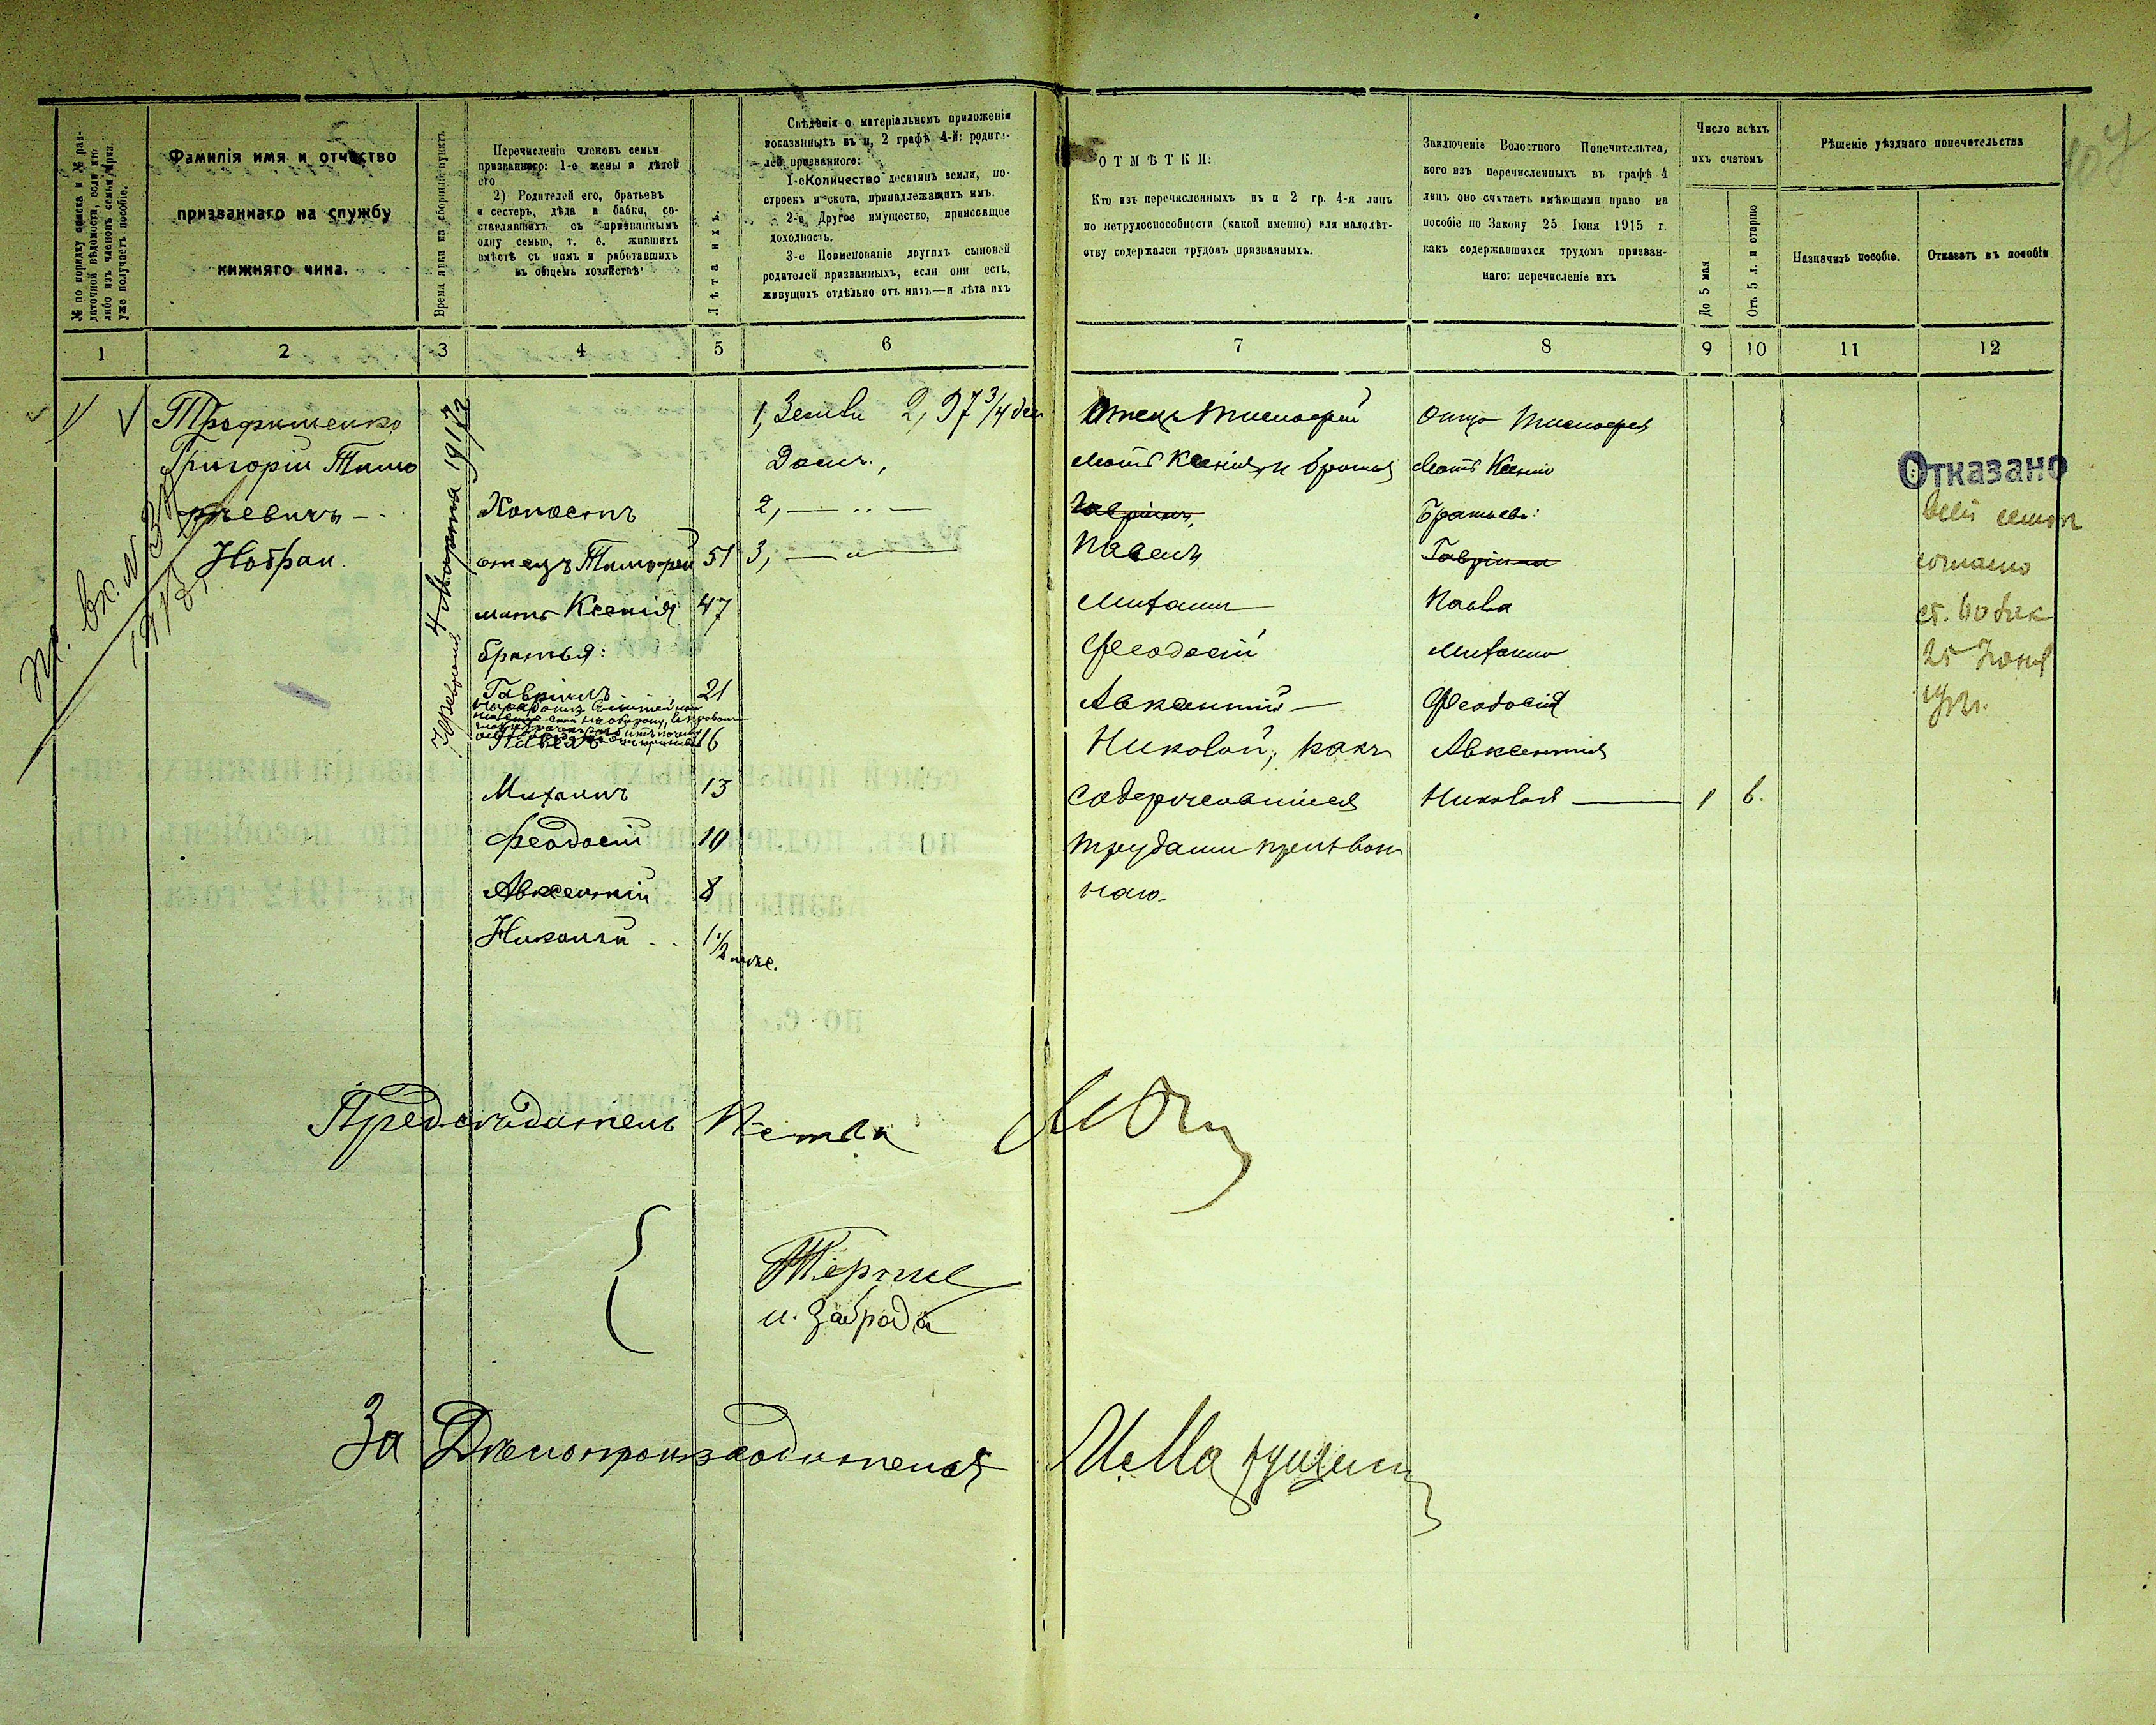 № по порядку списка и № раз-
даточной вѣдомости, если кто
либо изъ членовъ семьи приз.
уже получаетъ пособіе.
Фамилія имя и отчество
призваннаго на службу
нижняго чина.
Время явки на сборный пунктъ
Перечисленіе членовъ семьи
призваннаго: 1-е жены и дѣтей
его
2) Родителей его, братьевъ
и сестеръ, дѣда и бабки, со-
ставлявшихъ съ призваннымъ
одну семью, т. е. жившихъ
вмѣстѣ съ нимъ и работавшихъ
въ общемъ хозяйствѣ
Лѣта ихъ.
Свѣдѣнія о матеріальномъ приложеніи
показанныхъ въ п, 2 графѣ 4-й: родите-
лей призваннаго:
1-е Количество десятинъ земли, по-
строекъ и скота, принадлежащихъ имъ.
2-е Другое имущество, приносящее
доходность.
3-е Поименованіе другихъ сыновей
родителей призванныхъ, если они есть,
живущихъ отдѣльно отъ нихъ—и лѣта ихъ
ОТМѢТКИ:
Кто изъ перечисленныхъ въ п 2 гр. 4-я лицъ
по нетрудоспособности (какой именно) или малолѣт-
ству содержался трудомъ призванныхъ.
Заключеніе Волостного Попечительтва,
кого изъ перечисленныхъ въ графѣ 4
лицъ оно считаетъ имѣющими право на
пособіе по Закону 25 Іюня 1915 г.
какъ содержавшихся трудомъ призван-
наго: перечисленіе ихъ
Число всѣхъ
ихъ счетомъ
До 5 мая
Отъ 5 л. и старше
Рѣшеніе уѣзднаго попечительства
Назначить пособіе.
Отказать въ пособіи
1 2 3 4 5 6 7 8 9 10 11 12
Трофименко
Григорій Тимо
фѣевичъ -
4 Марта 1917 г.
Холостъ
отецъ Тимофей 51
мать Ксенія 47
братья:
Гавріилъ 21
Павелъ 16
Михаилъ 13
Феодосій 10
Авксентій 8
Николай 1 1/2 мѣс.
1, Земли 2,97 3/4 дес
Домъ,
2, — „ —
3, — „ —
Отецъ Тимофей
Мать Ксенія и братья
Гавріилъ,
Павелъ
Михаилъ
Феодосій
Авксентій —
Николай, какъ
содержавшиеся
трудами призван
наго.
Отца Тимофея
Мать Ксенію
Братьевъ:
Гавріила
Павла
Михаила
Феодосія
Авксентія
Николая — 1 6.
Отказано
всей семьѣ
согласно
25 Іюня
1912 г.
Предсѣдатель
и. Заброда
За Дѣлопроизводителя